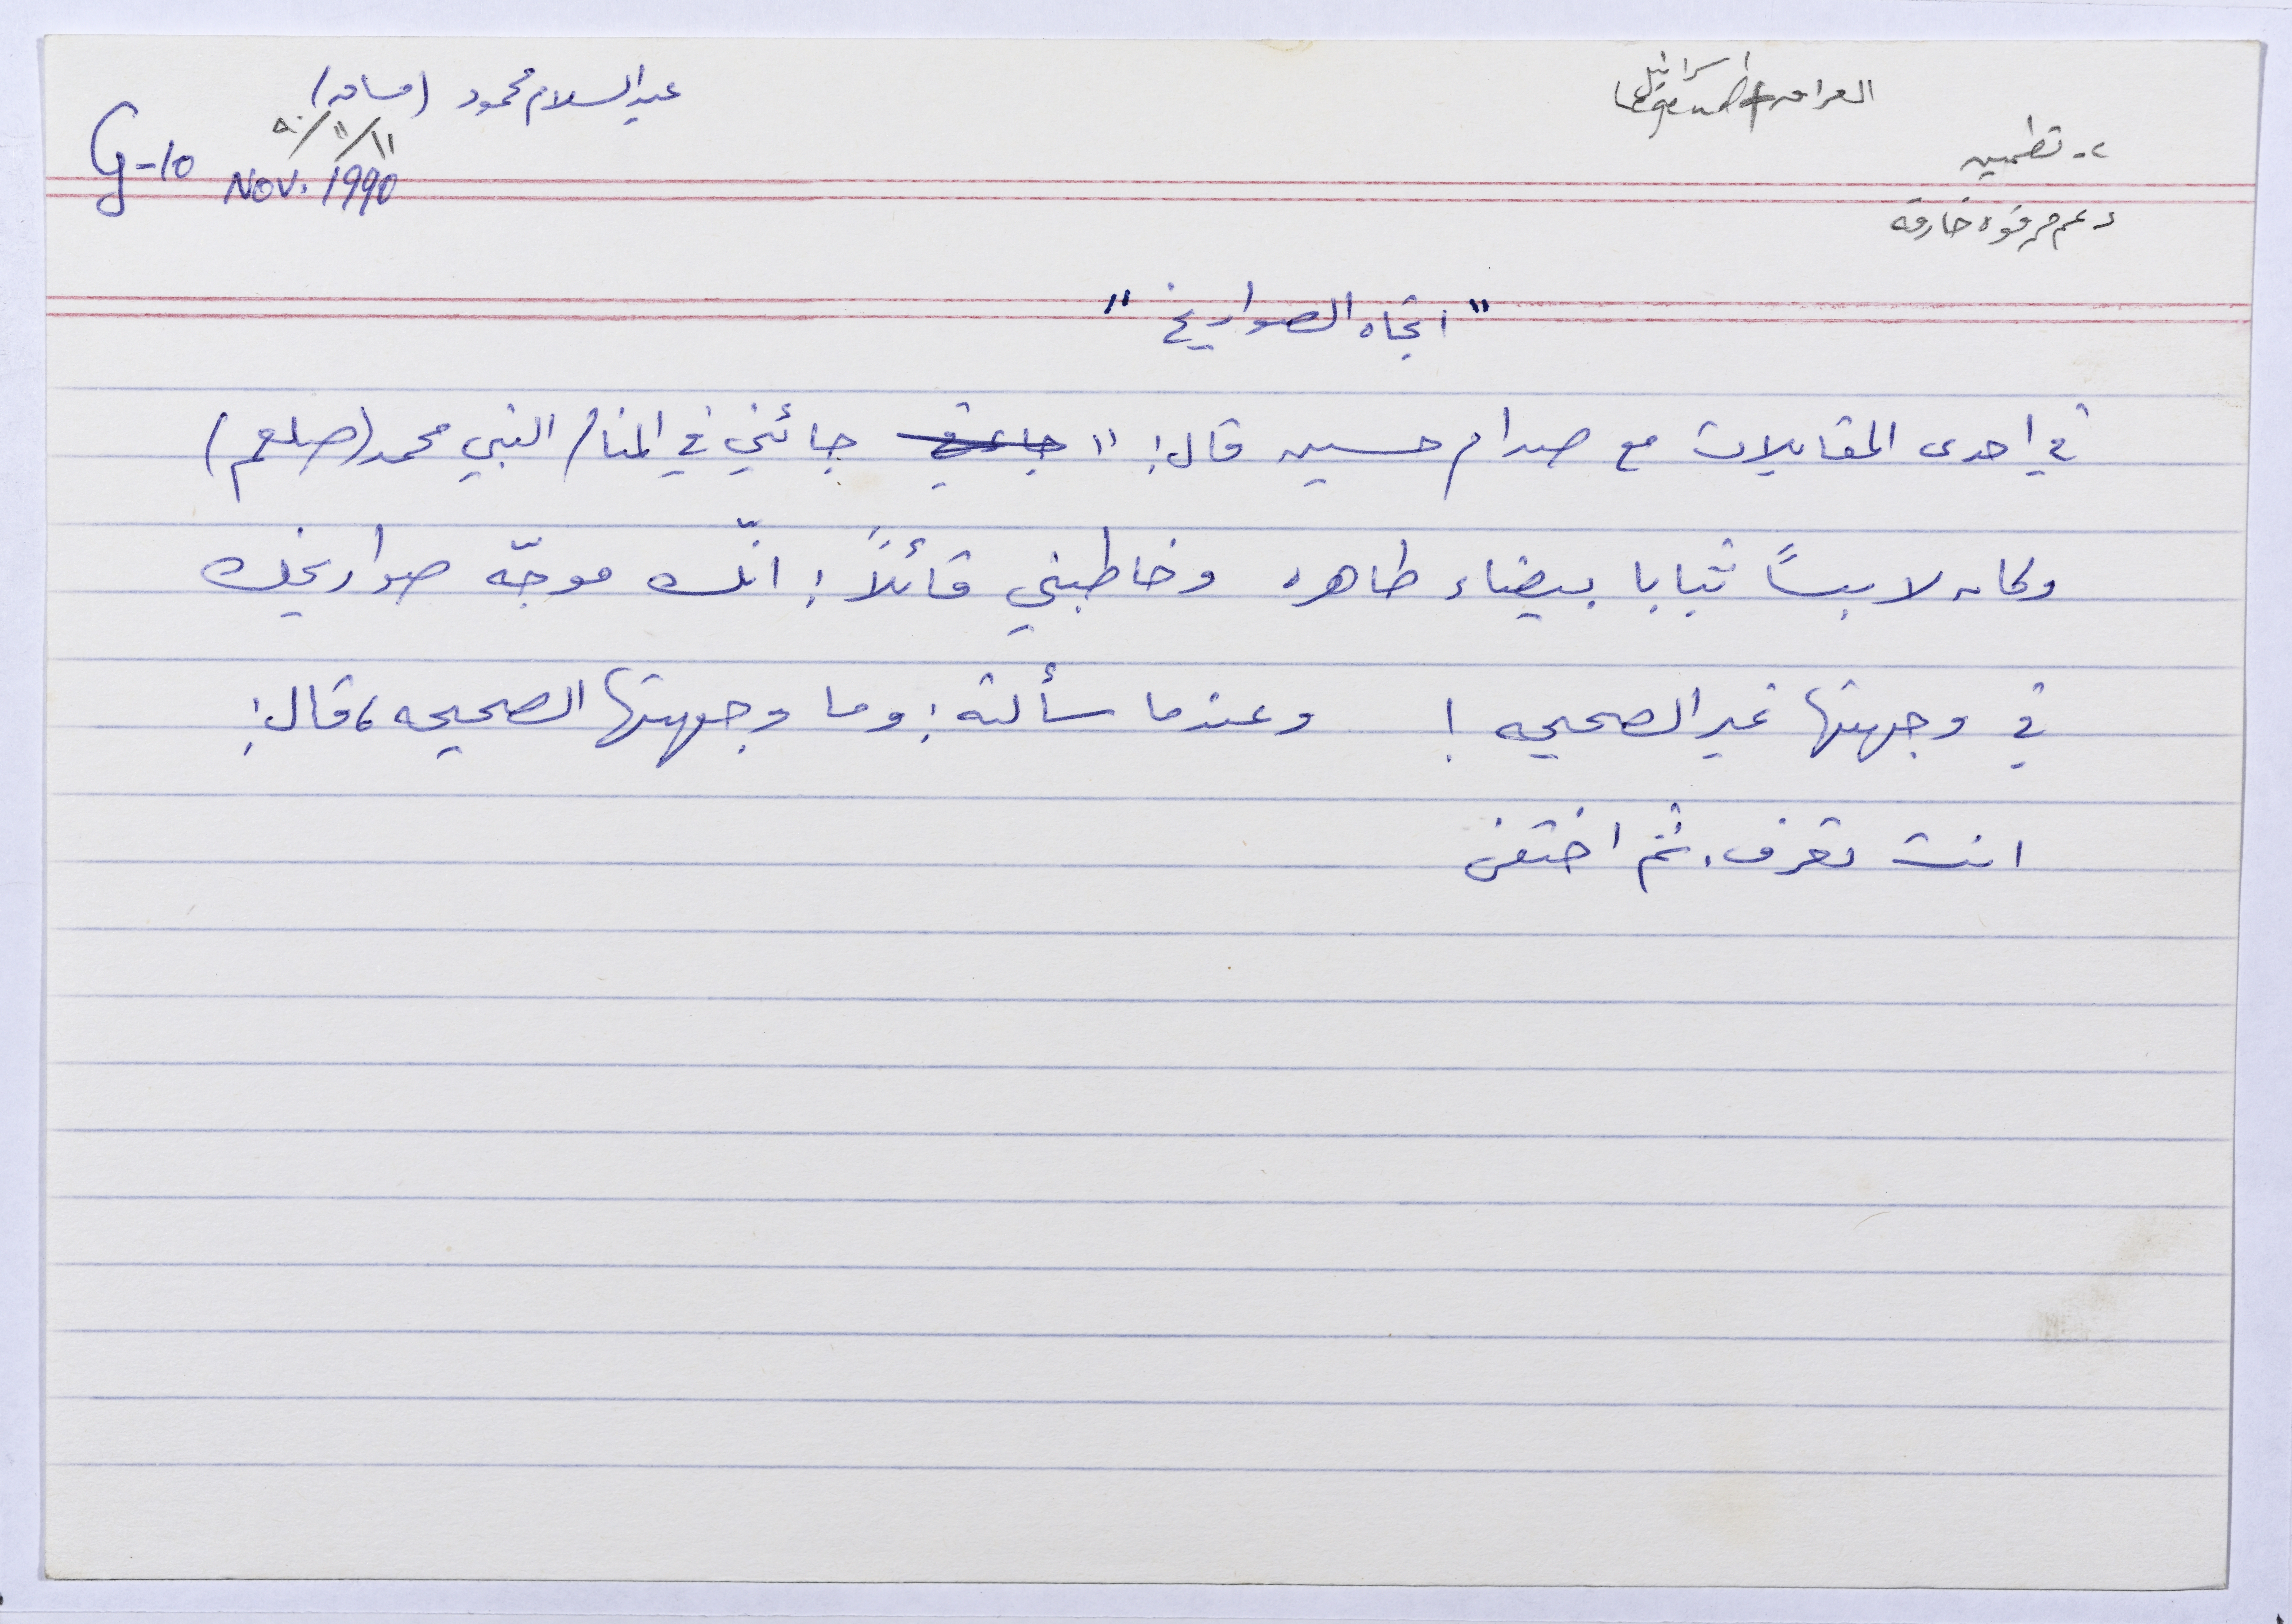 العراق + اسرائيل
عبد السلام محمود (سامر)
١١/١١/٩٠
G-10 NOV. 1990
٢- تطمين
دعم من قوه خارقه
"اتجاه الصواريخ"
في احدى المقابلات مع صدام حسين قال: " جائني في المنام النبي محمد (صلعم)
وكان لابساً ثيابا بيضاء طاهره وخاطبني قائلاً: انّك موجّه صواريخك
في وجهتها غير الصحيحه! وعندما سألته: وما وجهتها الصحيحه، قال:
انت تعرف. ثم اختفى